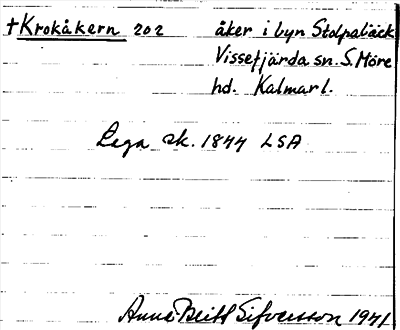 †Krokåkern 202 åker i byn Stolpabäck
Vissefjärda sn. S. Möre
hd. Kalmar l.
Laga sk. 1844 LSA
Anna-Britt Sifversson 1971